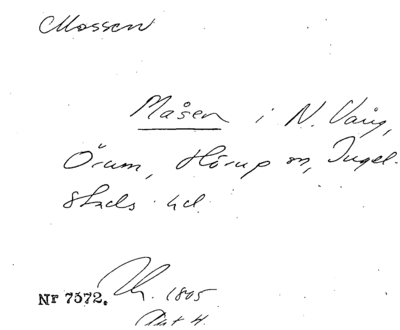 Mossen
Måsen i N. Vång,
Örum, Hörup sn, Ingel-
stads hd.
NF 7572. 1805
Akt 4.